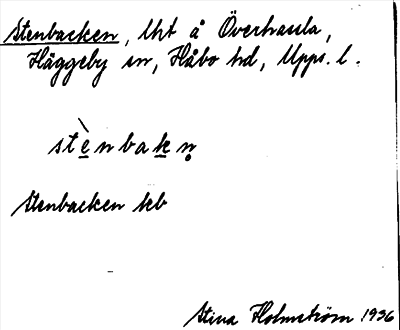 Stenbacken, lht å Överhassla,
Häggeby sn, Håbo hd, Upps. l.
stè̱nbaḵn̥
Stenbacken kb
Stina Holmström 1936